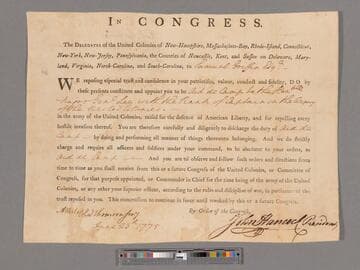 IN CONGRESS.
The DELEGATES of the United Colonies of New-Hampshire, Massachusetts-Bay, Rhode-Island, Connecticut,
New-York, New-Jersey, Pennsylvania, the Counties of Newcastle, Kent, and Sussex on Delaware, Mary-
land, Virginia, North-Carolina, and South-Carolina, to Samuel Griffin Esqr.
WE reposing especial trust and confidence in your patriotism, valour, conduct and fidelity, DO by
these presents constitute and appoint you to be Aid de Camp to the
Major Genl. Lee with the Rank of
in the army of the United Colonies, raised for the defence of American Liberty, and for repelling every
hostile invasion thereof. You are therefore carefully and diligently to discharge the duty of Aid de
Camp by doing and performing all manner of things thereunto belonging. And we do strictly
charge and require all officers and soldiers under your command, to be obedient to your orders, as
Aid de Camp And you are to observe and follow such orders and directions from
time to time as you shall receive from this or a future Congress of the United Colonies, or Committee of
Congress, for that purpose appointed, or Commander in Chief for the time being of the army of the United
Colonies, or any other your superior officer, according to the rules and discipline of war, in pursuance of the
trust reposed in you. This commission to continue in force until revoked by this or a future Congress.
By Order of the Congress,
Attest. Chas Thomson Secy
John Hancock President
1775